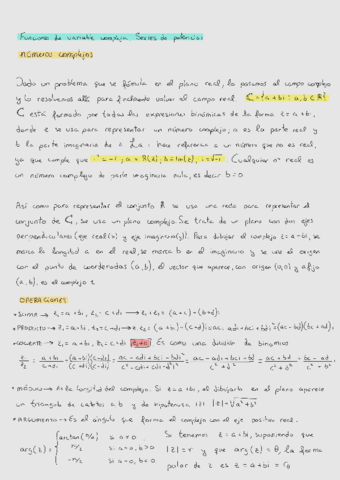 Funciones de variable compleja. Series de potencias
NÚMEROS COMPLEJOS
Dado un problema que se fórmula en el plano real, lo pasamos al campo complejo
y lo resolvemos allí para finalmente volver al campo real. C = {a+bi : a,b ∈ R}
C está formado por todas las expresiones binómicas de la forma z = a+bi,
donde z se usa para representar un número complejo, a es la parte real y
b la parte imaginaria de z. La i hace referencia a un número que no es real,
ya que cumple que i² = -1; a = R(z), b = Im(z), i = √-1. Cualquier nº real es
un número complejo de parte imaginaria nula, es decir b = 0
Así como para representar el conjunto R se usa una recta para representar el
conjunto de C, se usa un plano complejo. Se trata de un plano con dos ejes
perpendiculares (eje real(x) y eje imaginario(y)). Para dibujar el complejo z = a+bi, se
marca la longitud a en el real, se marca b en el imaginario y se une el origen
con el punto de coordenadas (a,b), el vector que aparece, con origen (0,0) y afijo
(a,b), es el complejo z
OPERACIONES
• SUMA → z₁ = a+bi, z₂ = c+di → z₁+z₂ = (a+c) + (b+d)i
• PRODUCTO → z₁ = a+bi, z₂ = c+di → z₁·z₂ = (a+bi)·(c+di) = ac+adi+bci+bdi² = (ac-bd)+(bc+ad)i
• COCIENTE → z₁ = a+bi, z₂ = c+di Es como una división de binomios
z₁/z₂ = (a+bi)/(c+di) = (a+bi)(c-di)/(c+di)(c-di) =
• MÓDULO → Es la longitud del complejo. Si z = a+bi, al dibujarlo en el plano aparece
un triángulo de catetos a, b y de hipotenusa |z| |z| = √a²+b²
• ARGUMENTO → Es el ángulo que forma el complejo con el eje positivo real.
arg(z) = { arctan(b/a) si a≠0 Si tenemos z = a+bi, suponiendo que
π/2 si a=0, b>0 |z| = r y que arg(z) = θ, la forma
-π/2 si a=0, b<0 polar de z es z = a+bi = r_θ